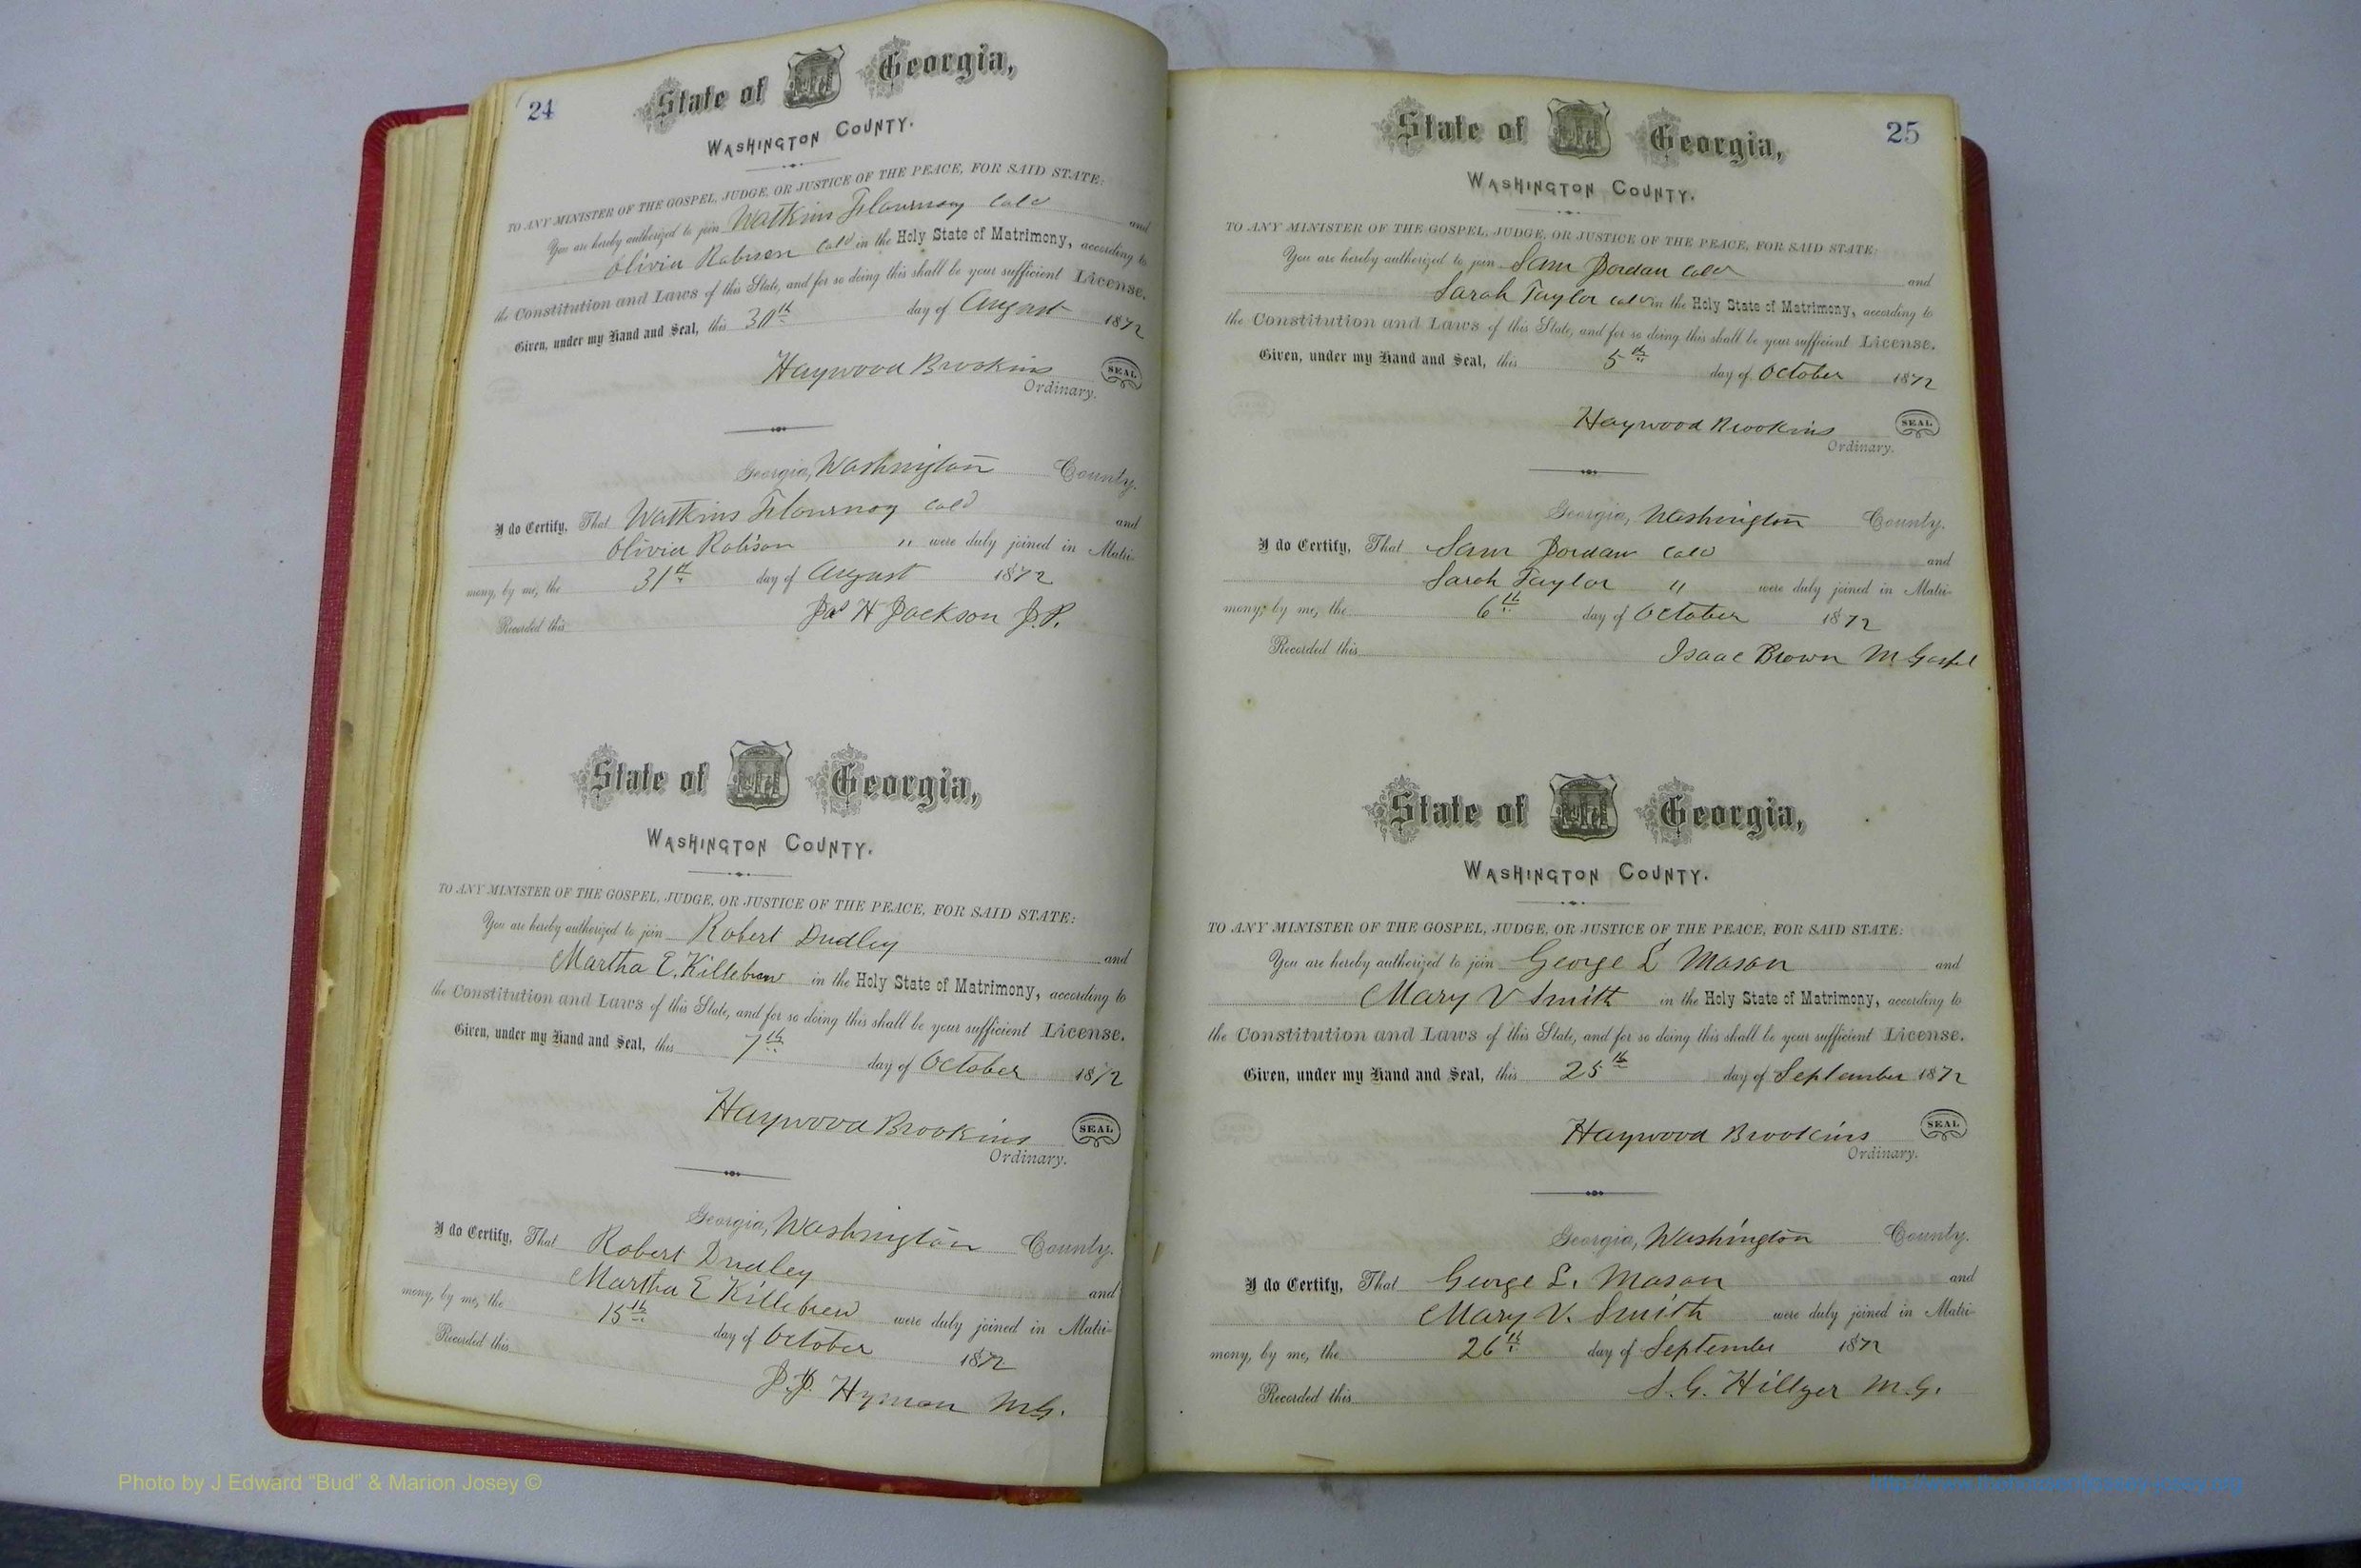 24
State of Georgia,
WASHINGTON COUNTY.
TO ANY MINISTER OF THE GOSPEL, JUDGE, OR JUSTICE OF THE PEACE, FOR SAID STATE:
You are hereby authorized to join Watkins Flournoy Cold and
Olivia Robison Cold in the Holy State of Matrimony, according to
the Constitution and Laws of this State, and for so doing this shall be your sufficient License.
Given, under my Hand and Seal, this 30th day of August 1872
Haywood Brookins SEAL
Ordinary.
Georgia, Washington County.
I do Certify, That Watkins Flournoy Cold and
Olivia Robison " were duly joined in Matri-
mony, by me, the 31st day of August 1872
Recorded this Jas H Jackson J.P.
State of Georgia,
WASHINGTON COUNTY.
TO ANY MINISTER OF THE GOSPEL, JUDGE, OR JUSTICE OF THE PEACE, FOR SAID STATE:
You are hereby authorized to join Robert Dudley and
Martha E. Killebrew in the Holy State of Matrimony, according to
the Constitution and Laws of this State, and for so doing this shall be your sufficient License.
Given, under my Hand and Seal, this 7th day of October 1872
Haywood Brookins SEAL
Ordinary.
Georgia, Washington County.
I do Certify, That Robert Dudley and
Martha E Killebrew were duly joined in Matri-
mony, by me, the 15th day of October 1872
Recorded this J.J. Hyman M.G.
25
State of Georgia,
WASHINGTON COUNTY.
TO ANY MINISTER OF THE GOSPEL, JUDGE, OR JUSTICE OF THE PEACE, FOR SAID STATE:
You are hereby authorized to join Sam Jordan Cold and
Sarah Taylor Cold in the Holy State of Matrimony, according to
the Constitution and Laws of this State, and for so doing this shall be your sufficient License.
Given, under my Hand and Seal, this 5th day of October 1872
Haywood Brookins SEAL
Ordinary.
Georgia, Washington County.
I do Certify, That Sam Jordan Cold and
Sarah Taylor " were duly joined in Matri-
mony, by me, the 6th day of October 1872
Recorded this Isaac Brown M. Gospel
State of Georgia,
WASHINGTON COUNTY.
TO ANY MINISTER OF THE GOSPEL, JUDGE, OR JUSTICE OF THE PEACE, FOR SAID STATE:
You are hereby authorized to join George L Mason and
Mary V Smith in the Holy State of Matrimony, according to
the Constitution and Laws of this State, and for so doing this shall be your sufficient License.
Given, under my Hand and Seal, this 25th day of September 1872
Haywood Brookins SEAL
Ordinary.
Georgia, Washington County.
I do Certify, That George L. Mason and
Mary V. Smith were duly joined in Matri-
mony, by me, the 26th day of September 1872
Recorded this S. G. Hillyer M.G.
Photo by J Edward "Bud" & Marion Josey ©